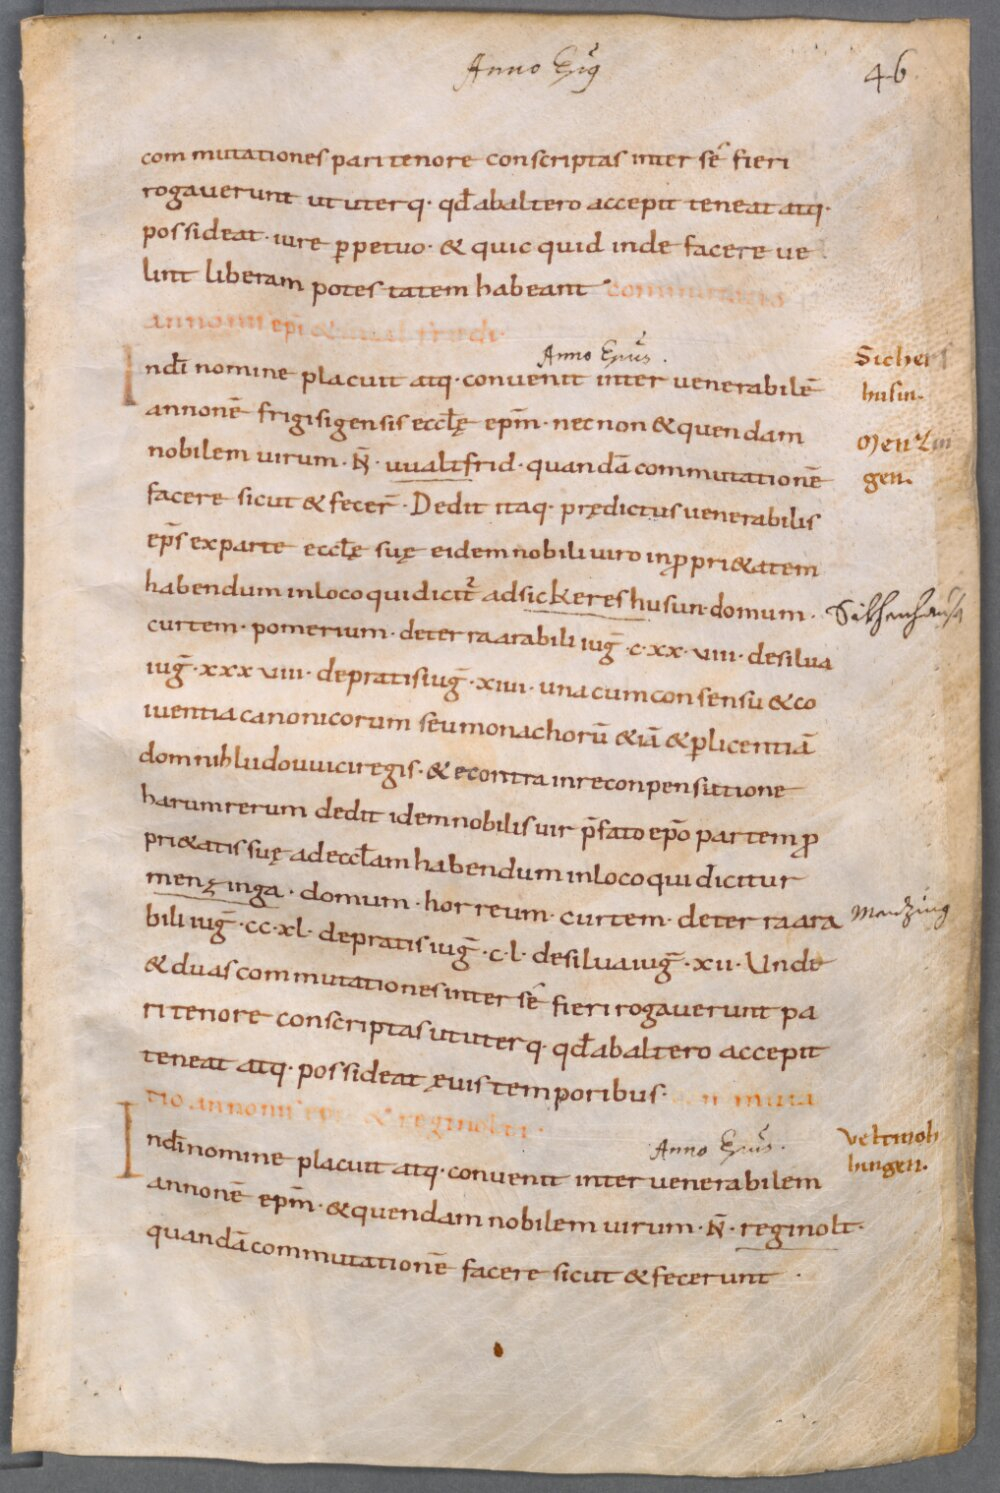 Anno Ep̄s
46
commutationes pari tenore conscriptas inter sé fieri
rogaverunt ut uterq· qđ abaltero accepit teneat atq·
possideat· iure ꝑpetuo· & quicquid inde facere ue
lint liberam potestatem habeant commutatio
annonis ep̄i & uualtfridi·
Anno Ep̄us.
Indī nomine placuit atq· convenit inter venerabilē
Sicher
husin.
annonē frigisigensis eccłę ep̄m· necnon & quendam
Menzin
nobilem uirum· N̄· uualtfrid· quandā commutationē
gen.
facere sicut & fecer̄· Dedit itaq· prędictus venerabilis
ep̄s ex parte eccłę suę eidem nobili uiro in ꝓpri&atem
habendum in loco qui dicit᷑ ad sickereshusun· domum·
curtem· pomerium· deterra arabili iuḡ· c· xx· viii· desilva
iuḡ· xxx viii· depratis iuḡ· xiiii· una cum consensu & co
iventia canonicorum seu monachorū &iā & ꝑ licentiā
domni hludouuici regis· & econtra in reconpensatione
harum rerum dedit idem nobilis uir p̄fato ep̄o partem ꝓ
pri&atis suę ad eccłam habendum in loco qui dicitur
menzinga· domum· horreum· curtem· deterra ara
Mentzing
bili iuḡ· cc· xl· depratis iuḡ· c· l· desilva iuḡ· xii· Unde
& duas commutationes inter sé fieri rogaverunt pa
ri tenore conscriptas ut uterq· qđ abaltero accepit
teneat atq· possideat ęvis temporibus· commuta
tio annonis epi & reginolti·
Anno Ep̄us.
Indī nomine placuit atq· convenit inter venerabilem
Veltmoh
hingen.
annonē ep̄m· & quendam nobilem uirum· N̄· reginolt·
quandā commutationē facere sicut & fecerunt ·